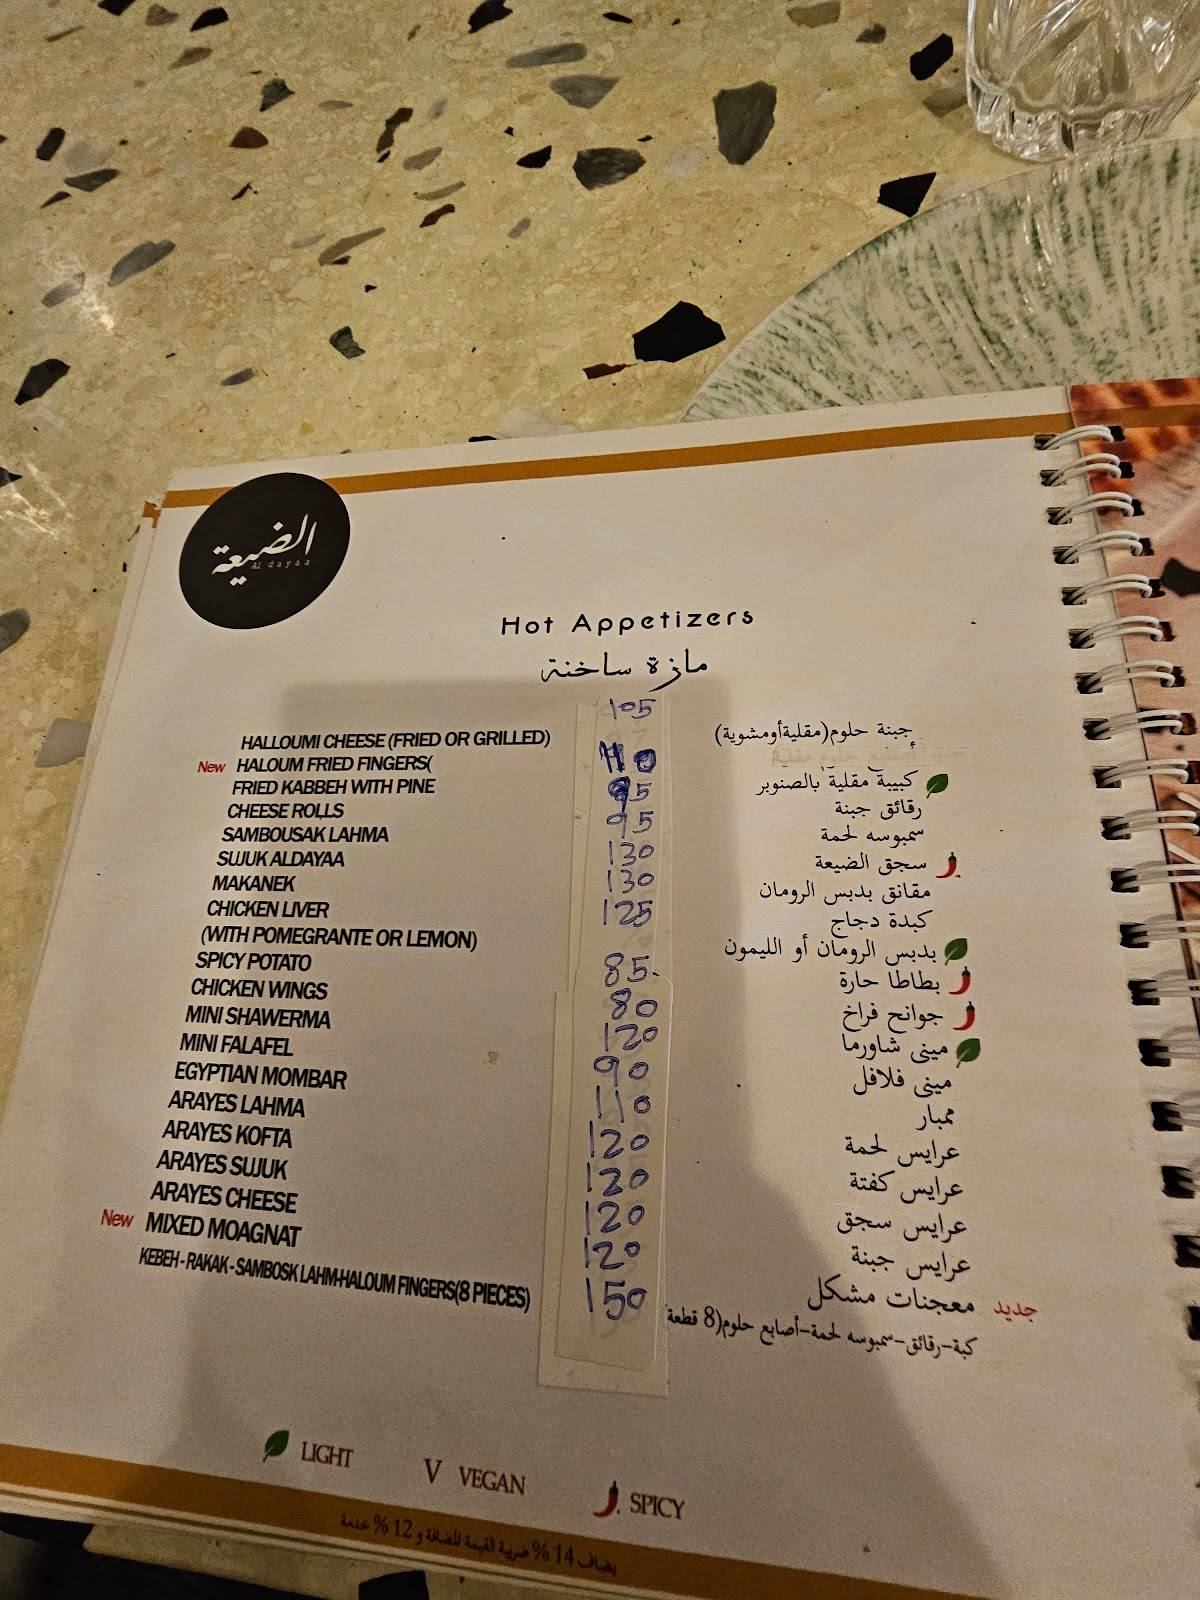 الضيعة
Al dayaa
Hot Appetizers
مازة ساخنة
105
HALLOUMI CHEESE (FRIED OR GRILLED)
جبنة حلوم(مقليةأومشوية)
New HALOUM FRIED FINGERS(
110
FRIED KABBEH WITH PINE
95
كبيبة مقلية بالصنوبر
CHEESE ROLLS
95
رقائق جبنة
SAMBOUSAK LAHMA
130
سمبوسه لحمة
SUJUK ALDAYAA
130
سجق الضيعة
MAKANEK
125
مقانق بدبس الرومان
CHICKEN LIVER
كبدة دجاج
(WITH POMEGRANTE OR LEMON)
بدبس الرومان أو الليمون
SPICY POTATO
85
بطاطا حارة
CHICKEN WINGS
80
جوانح فراخ
MINI SHAWERMA
120
مينى شاورما
MINI FALAFEL
90
مينى فلافل
EGYPTIAN MOMBAR
110
ممبار
ARAYES LAHMA
120
عرايس لحمة
ARAYES KOFTA
120
عرايس كفتة
ARAYES SUJUK
120
عرايس سجق
ARAYES CHEESE
120
عرايس جبنة
New MIXED MOAGNAT
150
جديد معجنات مشكل
KEBEH - RAKAK - SAMBOSK LAHM-HALOUM FINGERS(8 PIECES)
كبة-رقائق-سمبوسه لحمة-أصابع حلوم(8 قطعة
LIGHT
V VEGAN
SPICY
يضاف 14 % ضريبة القيمة المضافة و 12 % خدمة